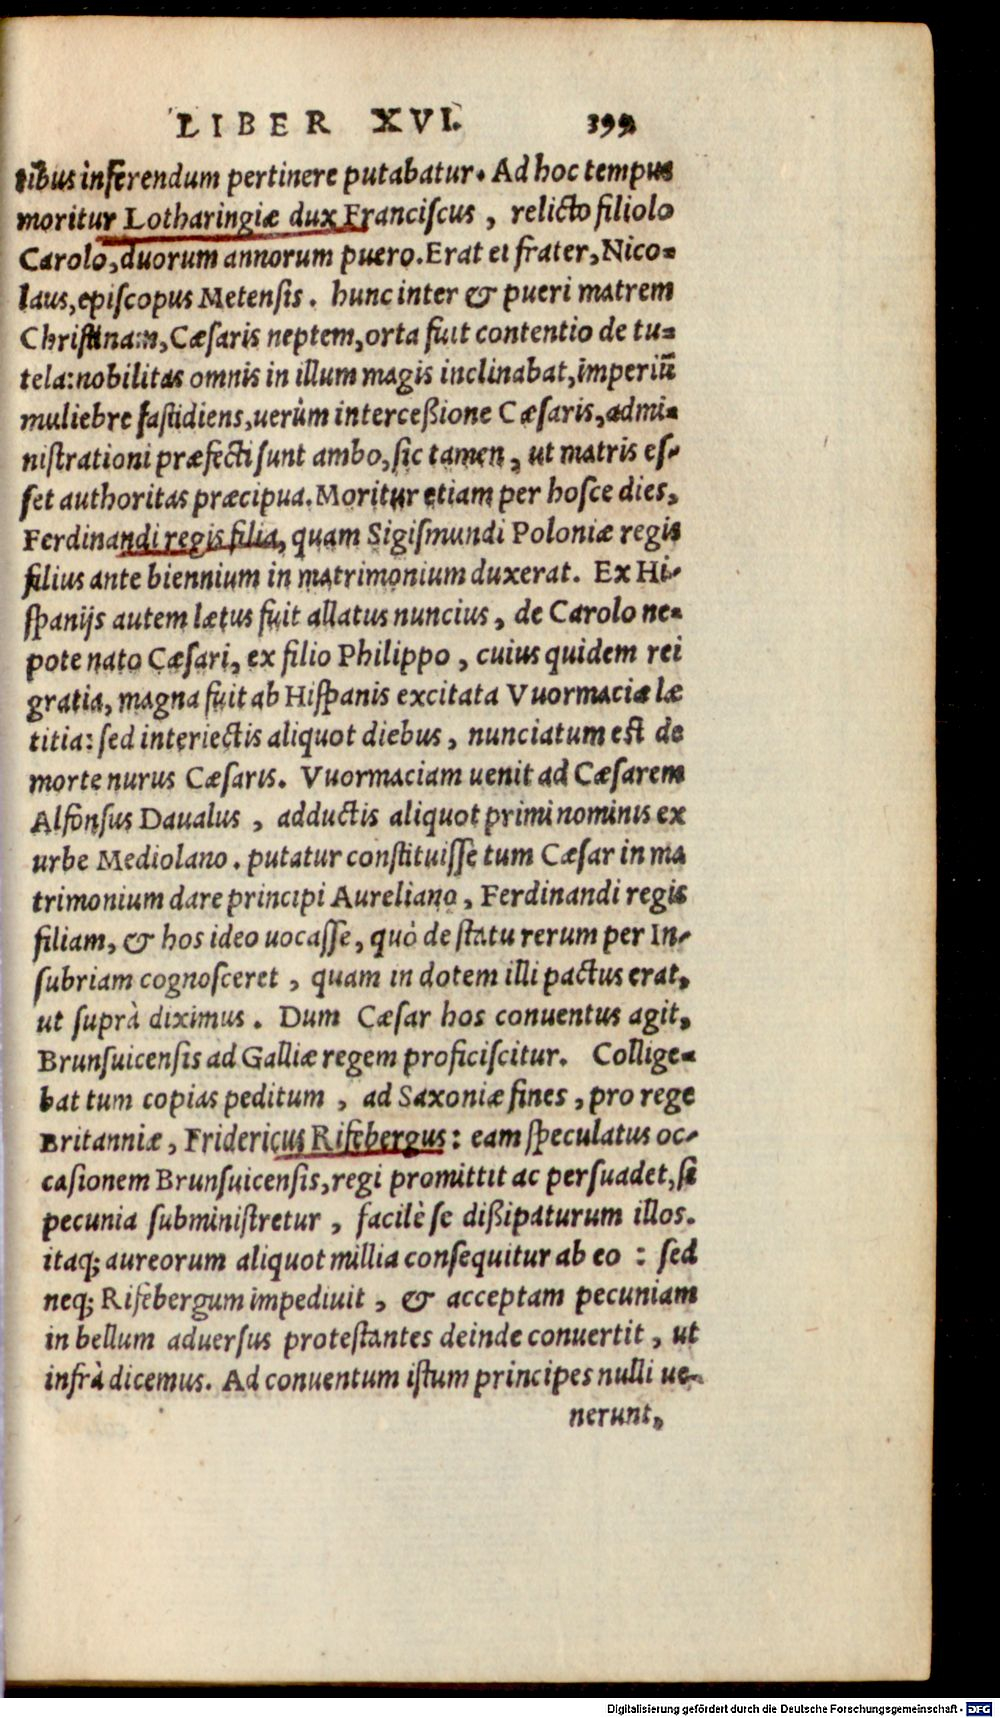 LIBER XVI. 399
tibus inferendum pertinere putabatur. Ad hoc tempus
moritur Lotharingiæ dux Franciſcus, relicto filiolo
Carolo, duorum annorum puero. Erat ei frater, Nico=
laus, epiſcopus Metenſis. hunc inter & pueri matrem
Chriſtinam, Cæſaris neptem, orta fuit contentio de tu=
tela: nobilitas omnis in illum magis inclinabat, imperiū
muliebre faſtidiens, uerùm interceßione Cæſaris, admi=
niſtrationi præfecti ſunt ambo, ſic tamen, ut matris eſ-
ſet authoritas præcipua. Moritur etiam per hoſce dies,
Ferdinandi regis filia, quam Sigiſmundi Poloniæ regis
filius ante biennium in matrimonium duxerat. Ex Hi-
ſpanijs autem lætus fuit allatus nuncius, de Carolo ne=
pote nato Cæſari, ex filio Philippo, cuius quidem rei
gratia, magna fuit ab Hiſpanis excitata Vuormaciæ læ
titia: ſed interiectis aliquot diebus, nunciatum eſt de
morte nurus Cæſaris. Vuormaciam uenit ad Cæſarem
Alfonſus Daualus, adductis aliquot primi nominis ex
urbe Mediolano. putatur conſtituiſſe tum Cæſar in ma
trimonium dare principi Aureliano, Ferdinandi regis
filiam, & hos ideo uocaſſe, quò de ſtatu rerum per In-
ſubriam cognoſceret, quam in dotem illi pactus erat,
ut ſuprà diximus. Dum Cæſar hos conuentus agit,
Brunſuicenſis ad Galliæ regem proficiſcitur. Collige=
bat tum copias peditum, ad Saxoniæ fines, pro rege
Britanniæ, Fridericus Rifebergus: eam ſpeculatus oc-
caſionem Brunſuicenſis, regi promittit ac perſuadet, ſi
pecunia ſubminiſtretur, facilè ſe dißipaturum illos.
itaq; aureorum aliquot millia conſequitur ab eo: ſed
neq; Rifebergum impediuit, & acceptam pecuniam
in bellum aduerſus proteſtantes deinde conuertit, ut
infrà dicemus. Ad conuentum iſtum principes nulli ue-
nerunt,
Digitalisierung gefördert durch die Deutsche Forschungsgemeinschaft - DFG